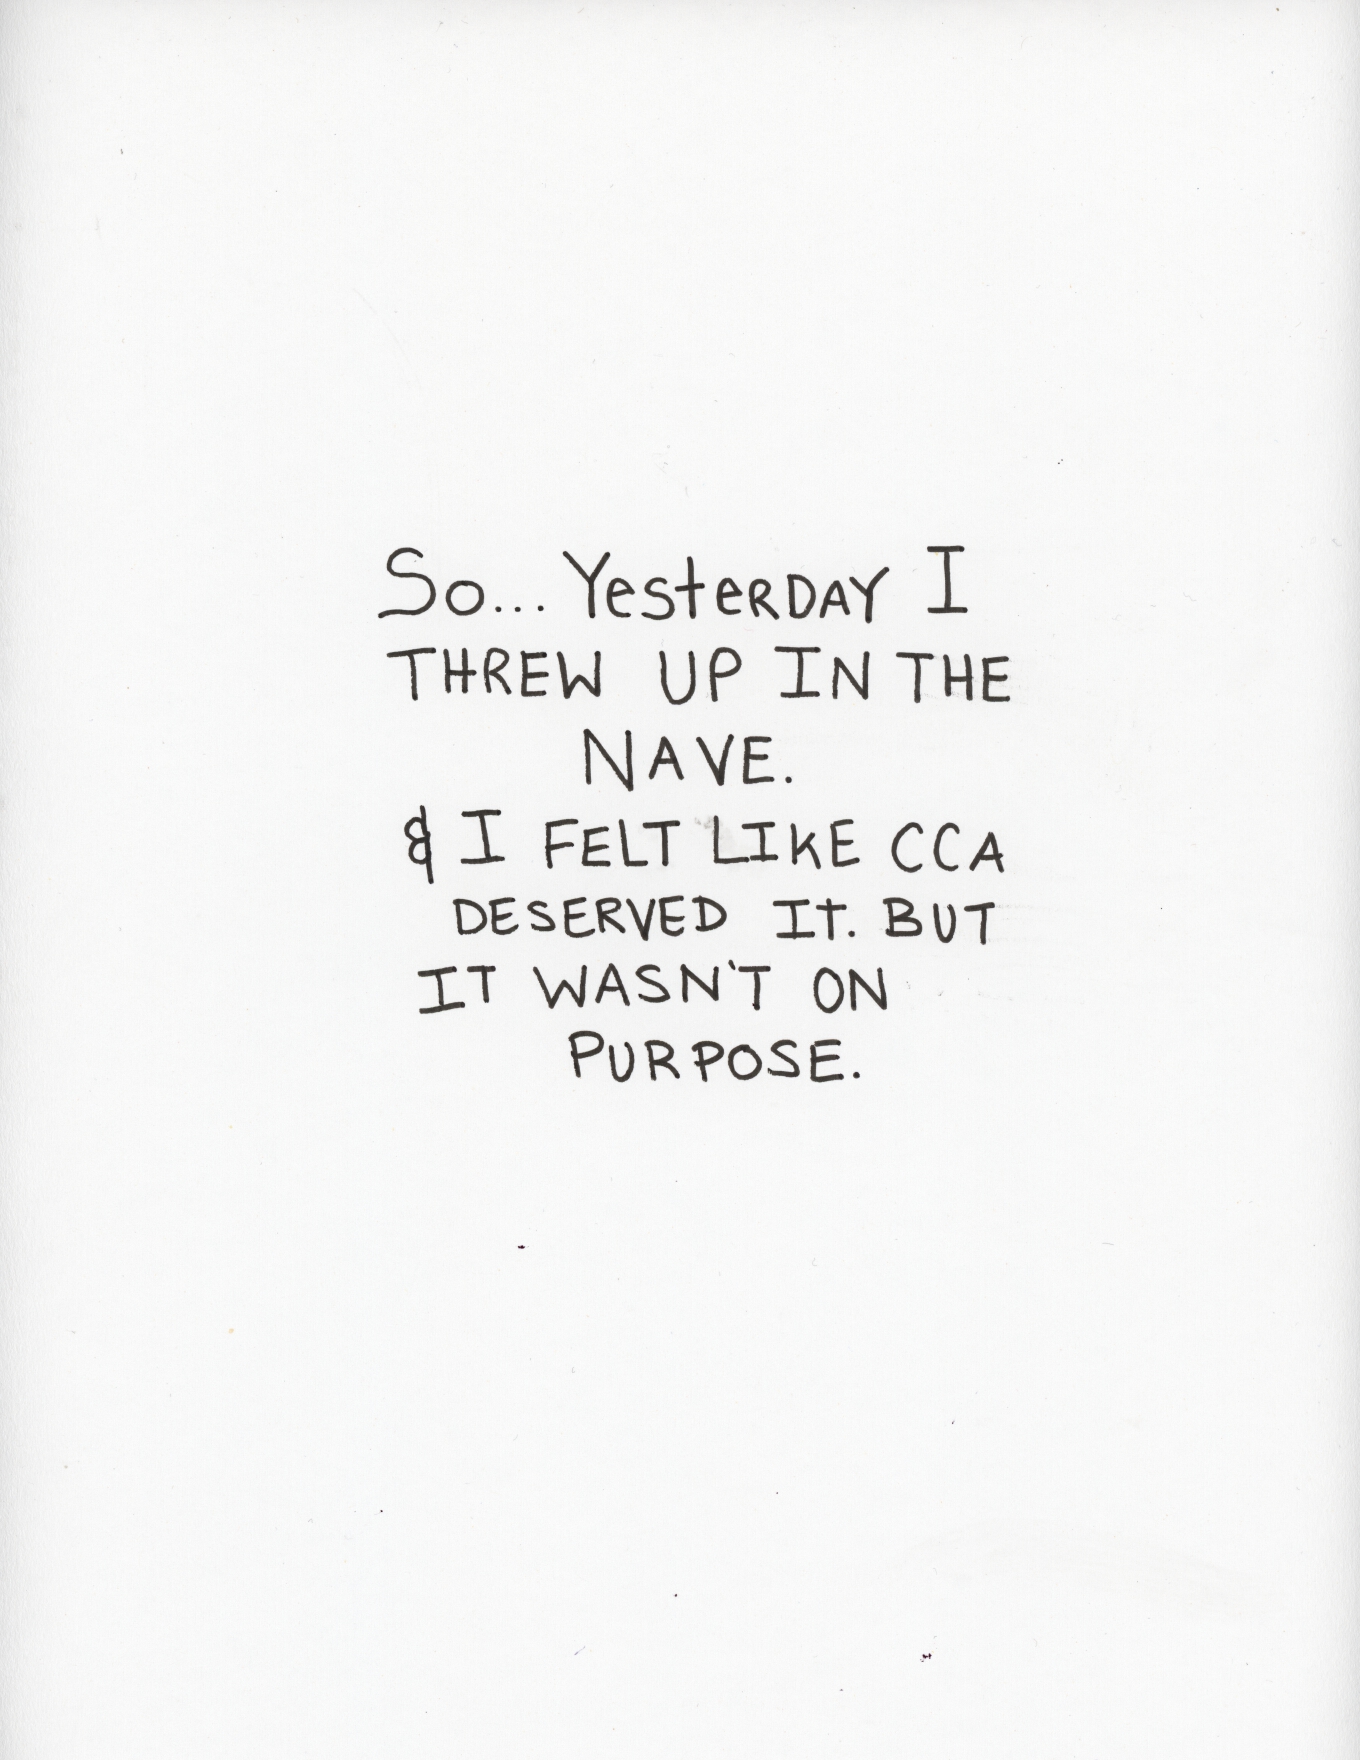 So... YesteRDAY I
THREW UP IN THE
NAVE.
& I FELT LIKE CCA
DESERVED It. BUT
IT WASN'T ON
PURPOSE.